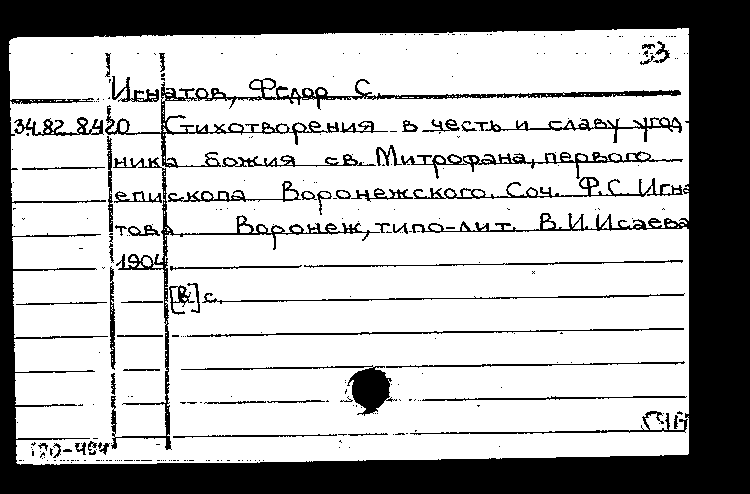 33
Игнатов, Федор С.
34.82.8.420 Стихотворения в честь и славу угод-
ника божия св. Митрофана, первого
епископа Воронежского. Соч. Ф.С. Игна
това. Воронеж, типо-лит. В.И. Исаева
1904.
с.